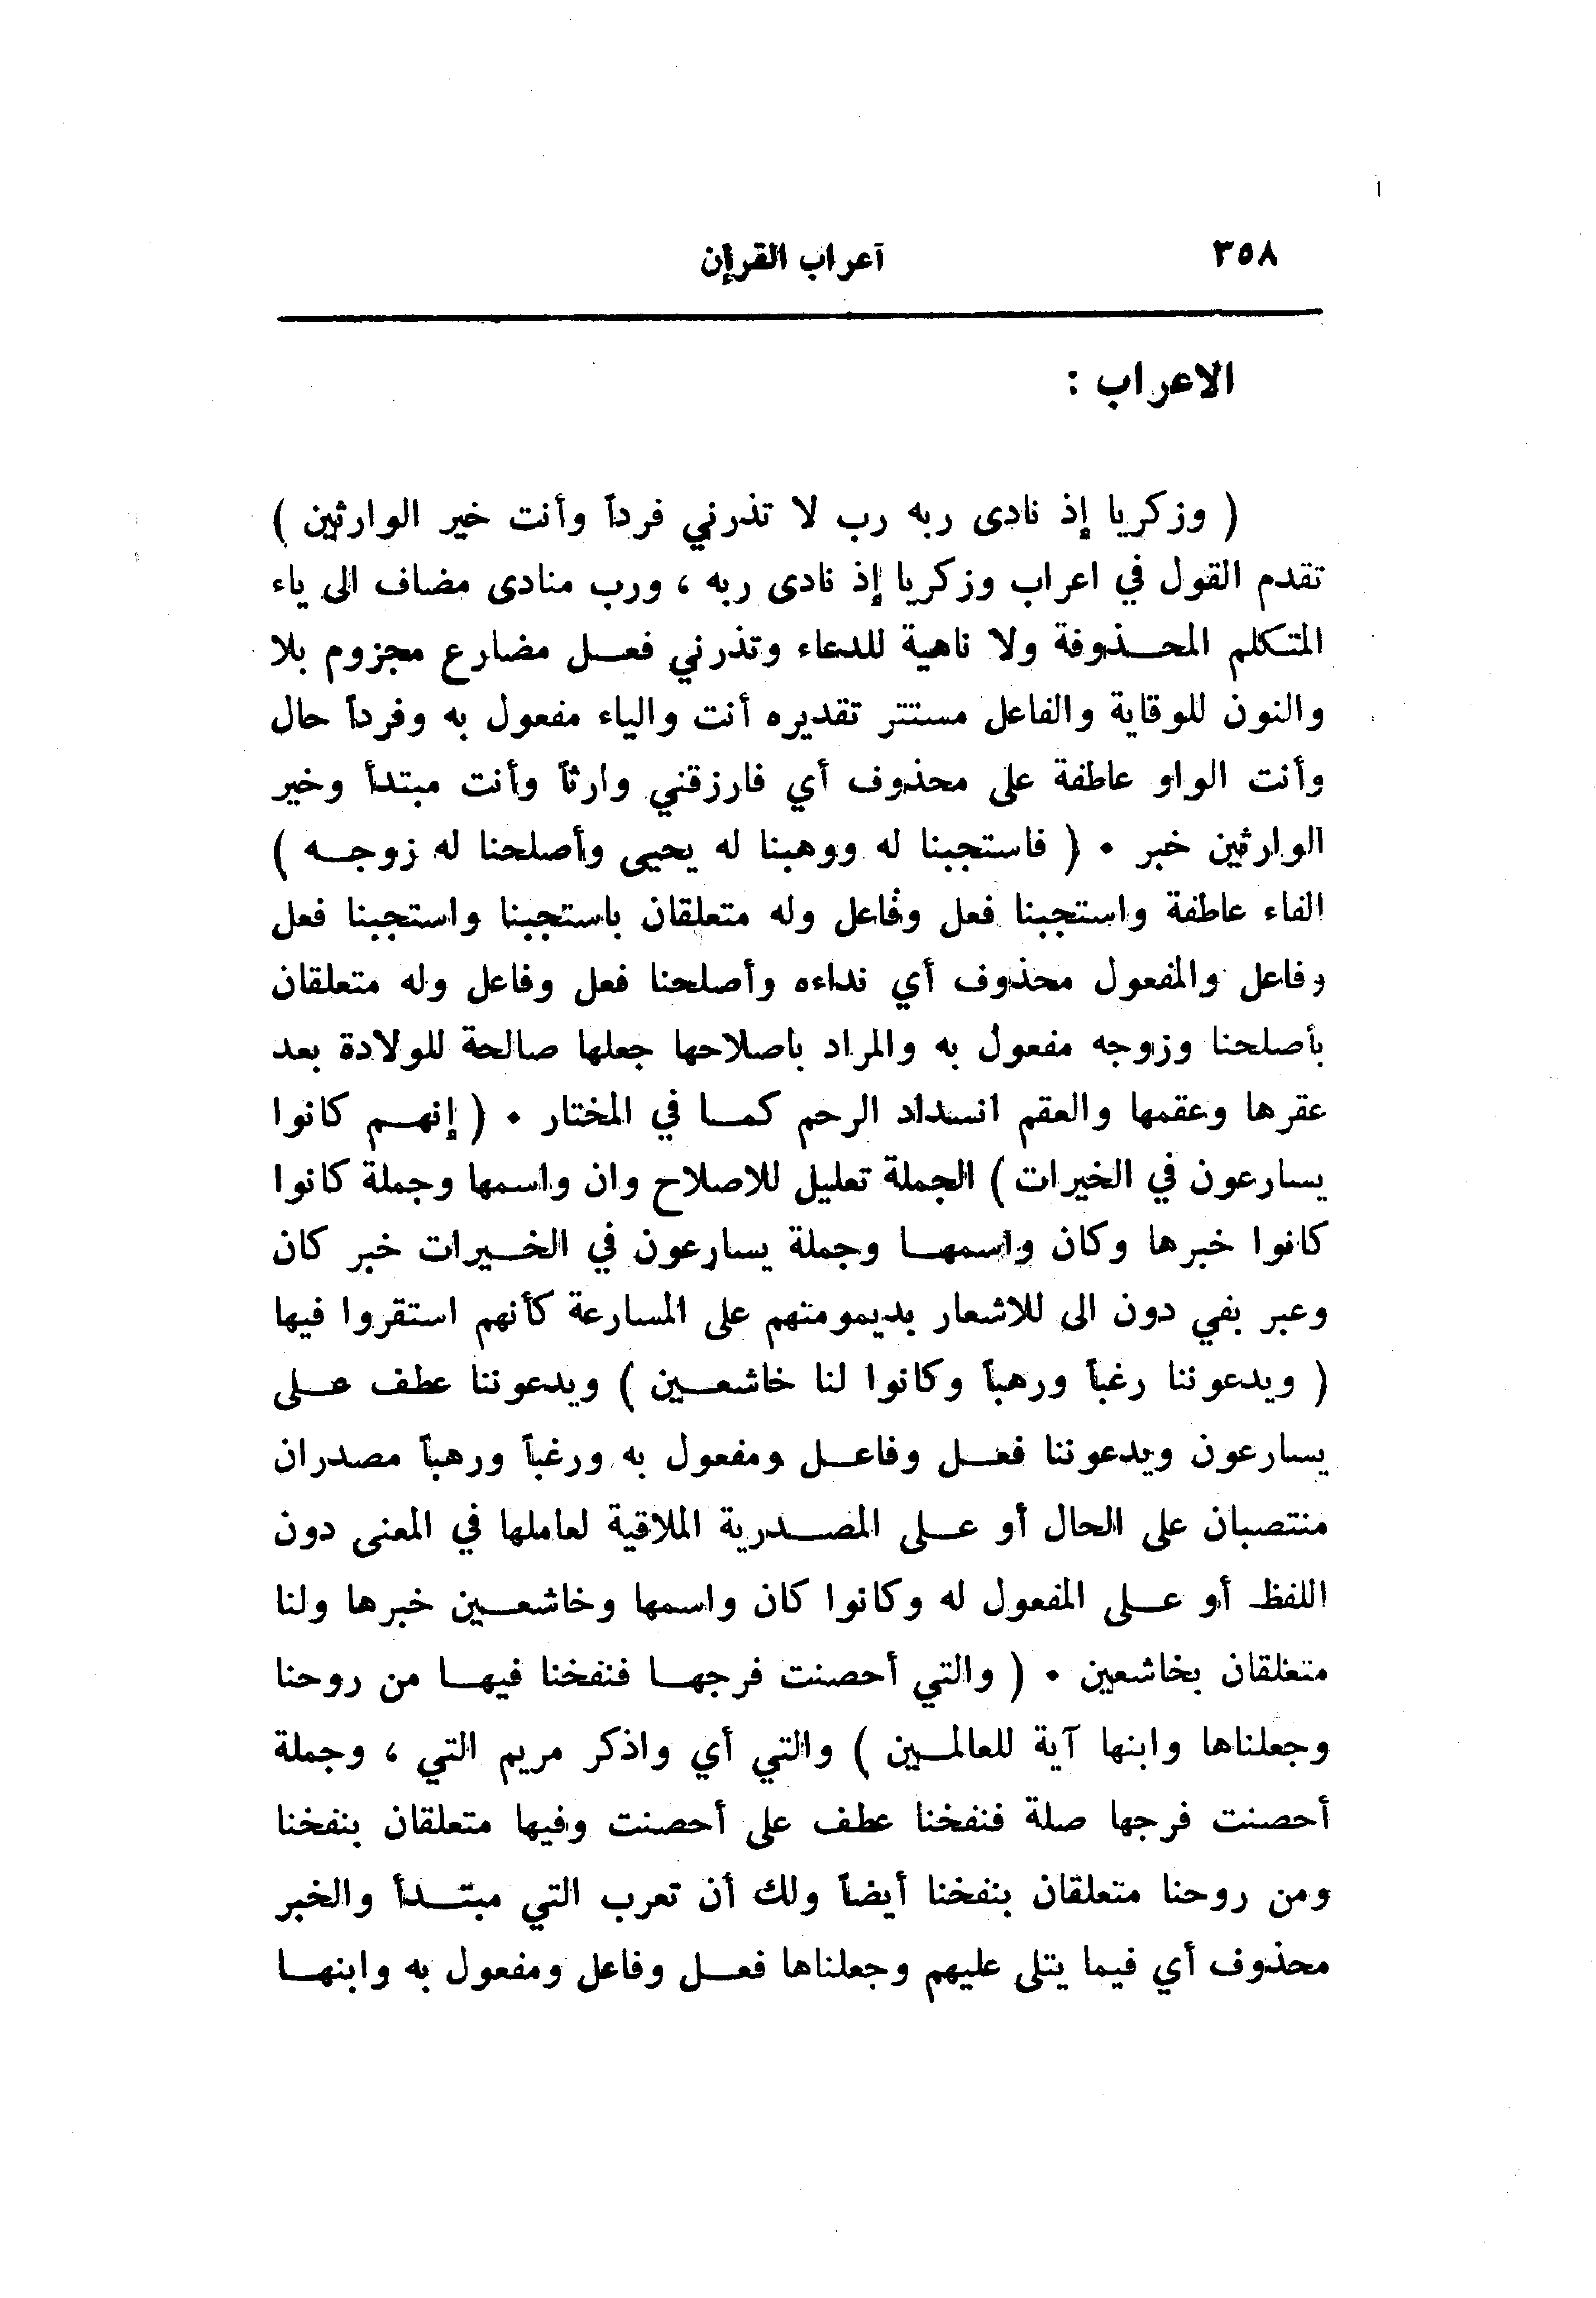 ٣٥٨
آعراب القرإن
الاعراب :
( وزكريا إذ نادى ربه رب لا تذرني فرداً وأنت خير الوارثين )
تقدم القول في اعراب وزكريا إذ نادى ربه ، ورب منادى مضاف الى ياء
المتكلم المحذوفة ولا ناهية للدعاء وتذرني فعل مضارع مجزوم بلا
والنون للوقاية والفاعل مستتر تقديره أنت والياء مفعول به وفرداً حال
وأنت الواو عاطفة على محذوف أي فارزقني وارثاً وأنت مبتدأ وخير
الوارثين خبر . ( فاستجبنا له ووهبنا له يحيى وأصلحنا له زوجه )
الفاء عاطفة واستجبنا فعل وفاعل وله متعلقان باستجبنا واستجبنا فعل
وفاعل والمفعول محذوف أي نداءه وأصلحنا فعل وفاعل وله متعلقان
بأصلحنا وزوجه مفعول به والمراد باصلاحها جعلها صالحة للولادة بعد
عقرها وعقمها والعقم انسداد الرحم كما في المختار . ( إنهم كانوا
يسارعون في الخيرات ) الجملة تعليل للاصلاح وان واسمها وجملة كانوا
كانوا خبرها وكان واسمها وجملة يسارعون في الخيرات خبر كان
وعبر بفي دون الى للاشعار بديمومتهم على المسارعة كأنهم استقروا فيها
( ويدعوننا رغباً ورهباً وكانوا لنا خاشعين ) ويدعوننا عطف على
يسارعون ويدعوننا فعل وفاعل ومفعول به ورغباً ورهباً مصدران
منتصبان على الحال أو على المصدرية الملاقية لعاملها في المعنى دون
اللفظ أو على المفعول له وكانوا كان واسمها وخاشعين خبرها ولنا
متعلقان بخاشعين . ( والتي أحصنت فرجها فنفخنا فيها من روحنا
وجعلناها وابنها آية للعالمين ) والتي أي واذكر مريم التي ، وجملة
أحصنت فرجها صلة فنفخنا عطف على أحصنت وفيها متعلقان بنفخنا
ومن روحنا متعلقان بنفخنا أيضاً ولك أن تعرب التي مبتدأ والخبر
محذوف أي فيما يتلى عليهم وجعلناها فعل وفاعل ومفعول به وابنها